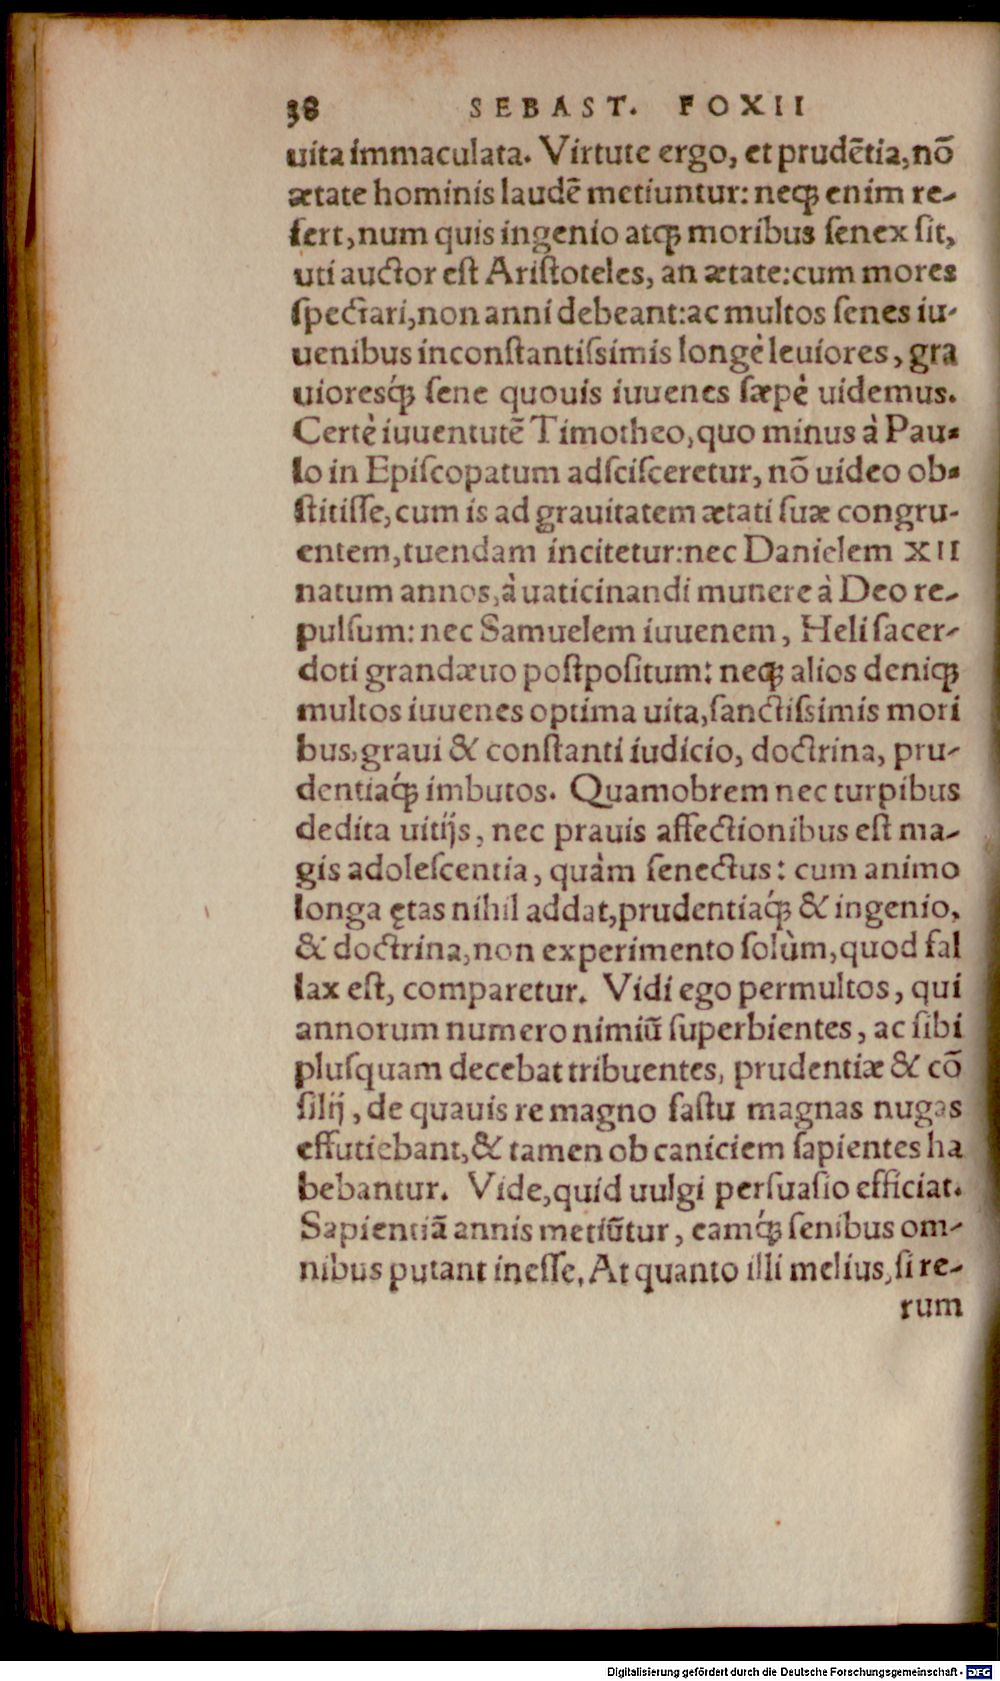 38 SEBAST. FOXII
uita immaculata. Virtute ergo, et prudētia, nō
ætate hominis laudē metiuntur: neqꝫ enim re-
fert, num quis ingenio atqꝫ moribus ſenex ſit,
uti auctor eſt Ariſtoteles, an ætate: cum mores
ſpectari, non anni debeant: ac multos ſenes iu-
uenibus inconſtantiſsimis longè leuiores, gra
uioresq́ꝫ ſene quouis iuuenes ſæpè uidemus.
Certè iuuentutē Timotheo, quo minus à Pau-
lo in Epiſcopatum adſciſceretur, nō uideo ob-
ſtitiſſe, cum is ad grauitatem ætati ſuæ congru-
entem, tuendam incitetur: nec Danielem XII
natum annos, à uaticinandi munere à Deo re-
pulſum: nec Samuelem iuuenem, Heli ſacer-
doti grandæuo poſtpoſitum: neqꝫ alios deniqꝫ
multos iuuenes optima uita, ſanctiſsimis mori
bus, graui & conſtanti iudicio, doctrina, pru-
dentiaq́ꝫ imbutos. Quamobrem nec turpibus
dedita uitijs, nec prauis affectionibus eſt ma-
gis adoleſcentia, quàm ſenectus: cum animo
longa ętas nihil addat, prudentiaq́ꝫ & ingenio,
& doctrina, non experimento ſolùm, quod fal
lax eſt, comparetur. Vidi ego permultos, qui
annorum numero nimiū ſuperbientes, ac ſibi
pluſquam decebat tribuentes, prudentiæ & cō
ſilij, de quauis re magno faſtu magnas nugas
effutiebant, & tamen ob caniciem ſapientes ha
bebantur. Vide, quid uulgi perſuaſio efficiat.
Sapientiā annis metiūtur, eamq́ꝫ ſenibus om-
nibus putant ineſſe, At quanto illi melius, ſi re-
rum
Digitalisierung gefördert durch die Deutsche Forschungsgemeinschaft - DFG